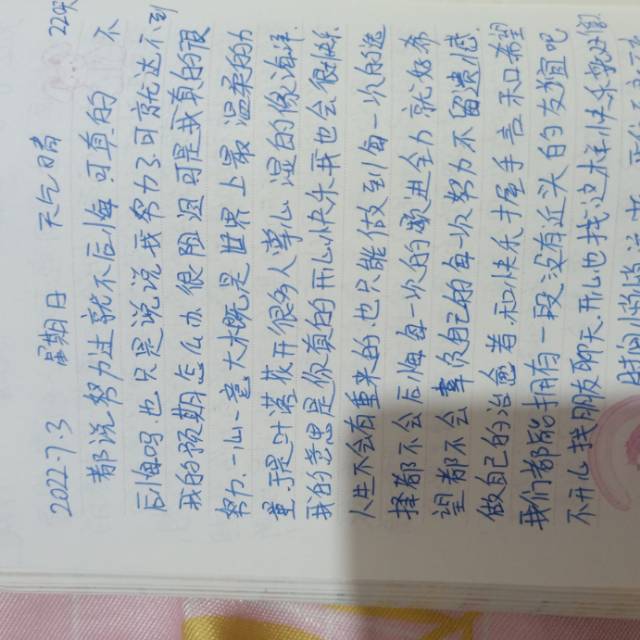 2022.7.3 星期日 天气晴 22℃
都说努力过就不后悔 可真的 不
后悔吗 也只是说说 我努力了可就达不到
我的预期怎么办 很胆迫 可是我真的很
努力.一心一意 大概是世界上最 温柔的力
量.于是叶落 找开很多人掌心 湿的 海洋
我的意思是 你真的开心快乐我也会很快乐
人生不会有重来的.也只能做到每一次的选
择都不会后悔 每一次的 进全力就好 希
望都不会 辜负自己的每次努力 不留遗憾
做自己的治愈者.和快乐握手言和 希望
我们都能拥有一段没有近头的友谊吧
不开心 找朋友聊天.开心也找 快乐
时间